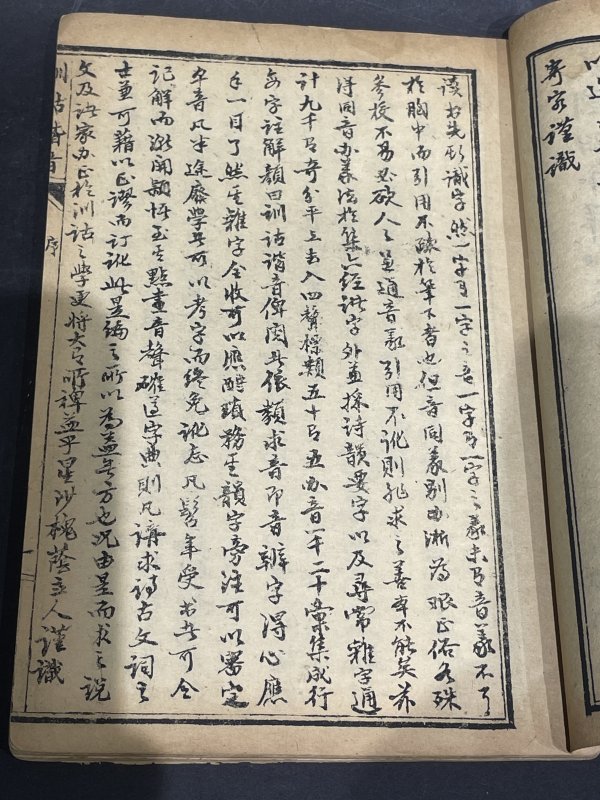 寄客謹識
讀書先取識字然一字有一字之音一字有一字之義未有音義不了
於胸中而引用不踈於筆下者也但音同義別
參校不易思欲人之並通音義引用不訛則非求之善本不能矣茲
得同音辦義法於集六經諸字外並採詩韻要字以及尋常雜字通
計九千有奇分平上去入四聲標類五十有五辦音一千二十彙集成行
每字註解顏曰訓詁諧音俾閱者依類求音即音辨字得心應
手一目了然至雜字全收可以應酬瑣務至韻字旁注可以審定
平音凡半途廢學者可以考字而終免訛忘凡髫年受書者可令
記解而漸開穎悟至其點畫音聲確遵字典則凡講求詩古文詞之
士並可藉以正謬而訂訛此是編之所以為益無方也況由是而求之說
文及諸家辦正於訓詁之學更將大有所裨益乎星沙槐蔭主人謹識
訓詁諧音
序